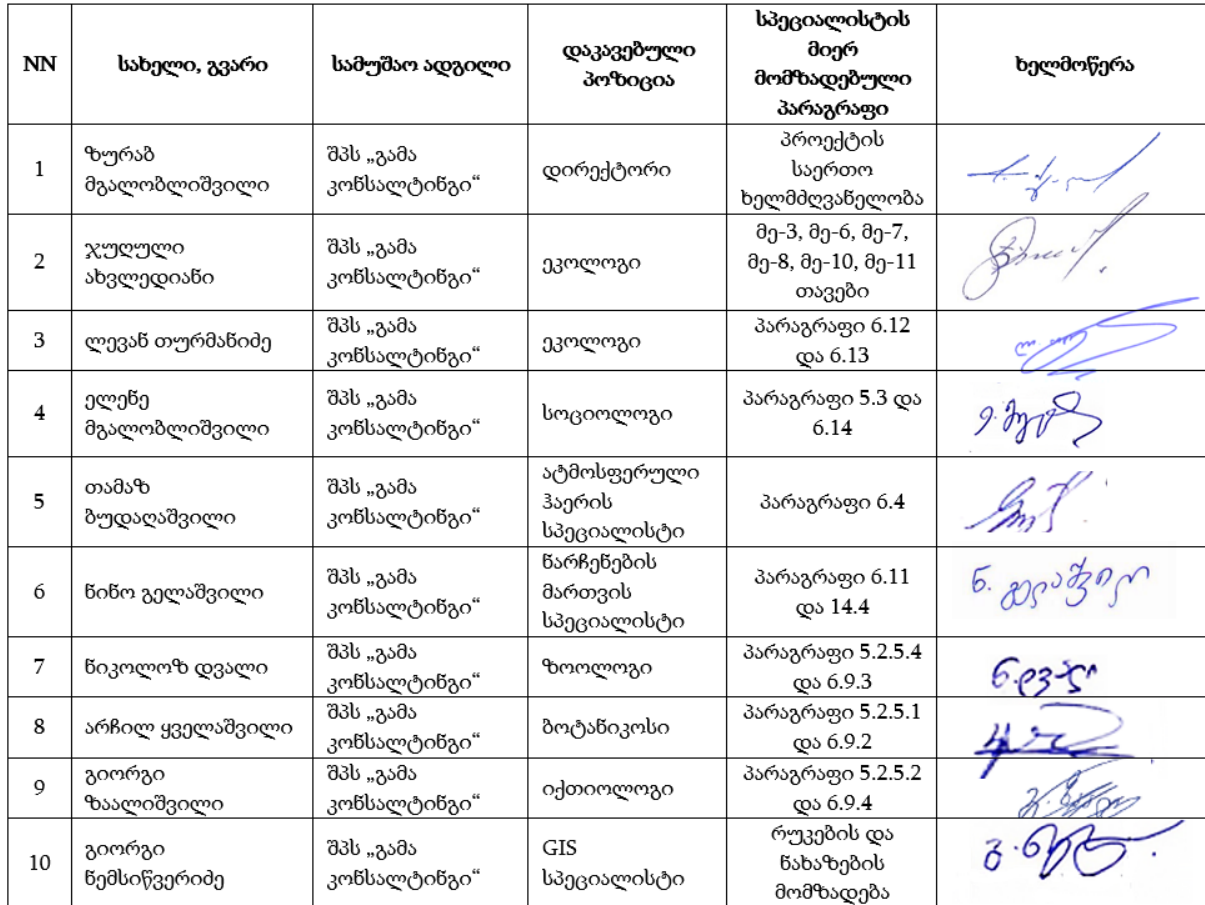 NN
სახელი, გვარი
სამუშაო ადგილი
დაკავებული
პოზიცია
სპეციალისტის
მიერ
მომზადებული
პარაგრაფი
ხელმოწერა
1
ზურაბ
მგალობლიშვილი
შპს „გამა
კონსალტინგი“
დირექტორი
პროექტის
საერთო
ხელმძღვანელობა
2
ჯუღული
ახვლედიანი
შპს „გამა
კონსალტინგი“
ეკოლოგი
მე-3, მე-6, მე-7,
მე-8, მე-10, მე-11
თავები
3
ლევან თურმანიძე
შპს „გამა
კონსალტინგი“
ეკოლოგი
პარაგრაფი 6.12
და 6.13
4
ელენე
მგალობლიშვილი
შპს „გამა
კონსალტინგი“
სოციოლოგი
პარაგრაფი 5.3 და
6.14
5
თამაზ
ბუდაღაშვილი
შპს „გამა
კონსალტინგი“
ატმოსფერული
ჰაერის
სპეციალისტი
პარაგრაფი 6.4
6
ნინო გელაშვილი
შპს „გამა
კონსალტინგი“
ნარჩენების
მართვის
სპეციალისტი
პარაგრაფი 6.11
და 14.4
ნ. გელაშვილი
7
ნიკოლოზ დვალი
შპს „გამა
კონსალტინგი“
ზოოლოგი
პარაგრაფი 5.2.5.4
და 6.9.3
ნ. დვალი
8
არჩილ ყველაშვილი
შპს „გამა
კონსალტინგი“
ბოტანიკოსი
პარაგრაფი 5.2.5.1
და 6.9.2
9
გიორგი
ზაალიშვილი
შპს „გამა
კონსალტინგი“
იქთიოლოგი
პარაგრაფი 5.2.5.2
და 6.9.4
10
გიორგი
ნემსიწვერიძე
შპს „გამა
კონსალტინგი“
GIS
სპეციალისტი
რუკების და
ნახაზების
მომზადება